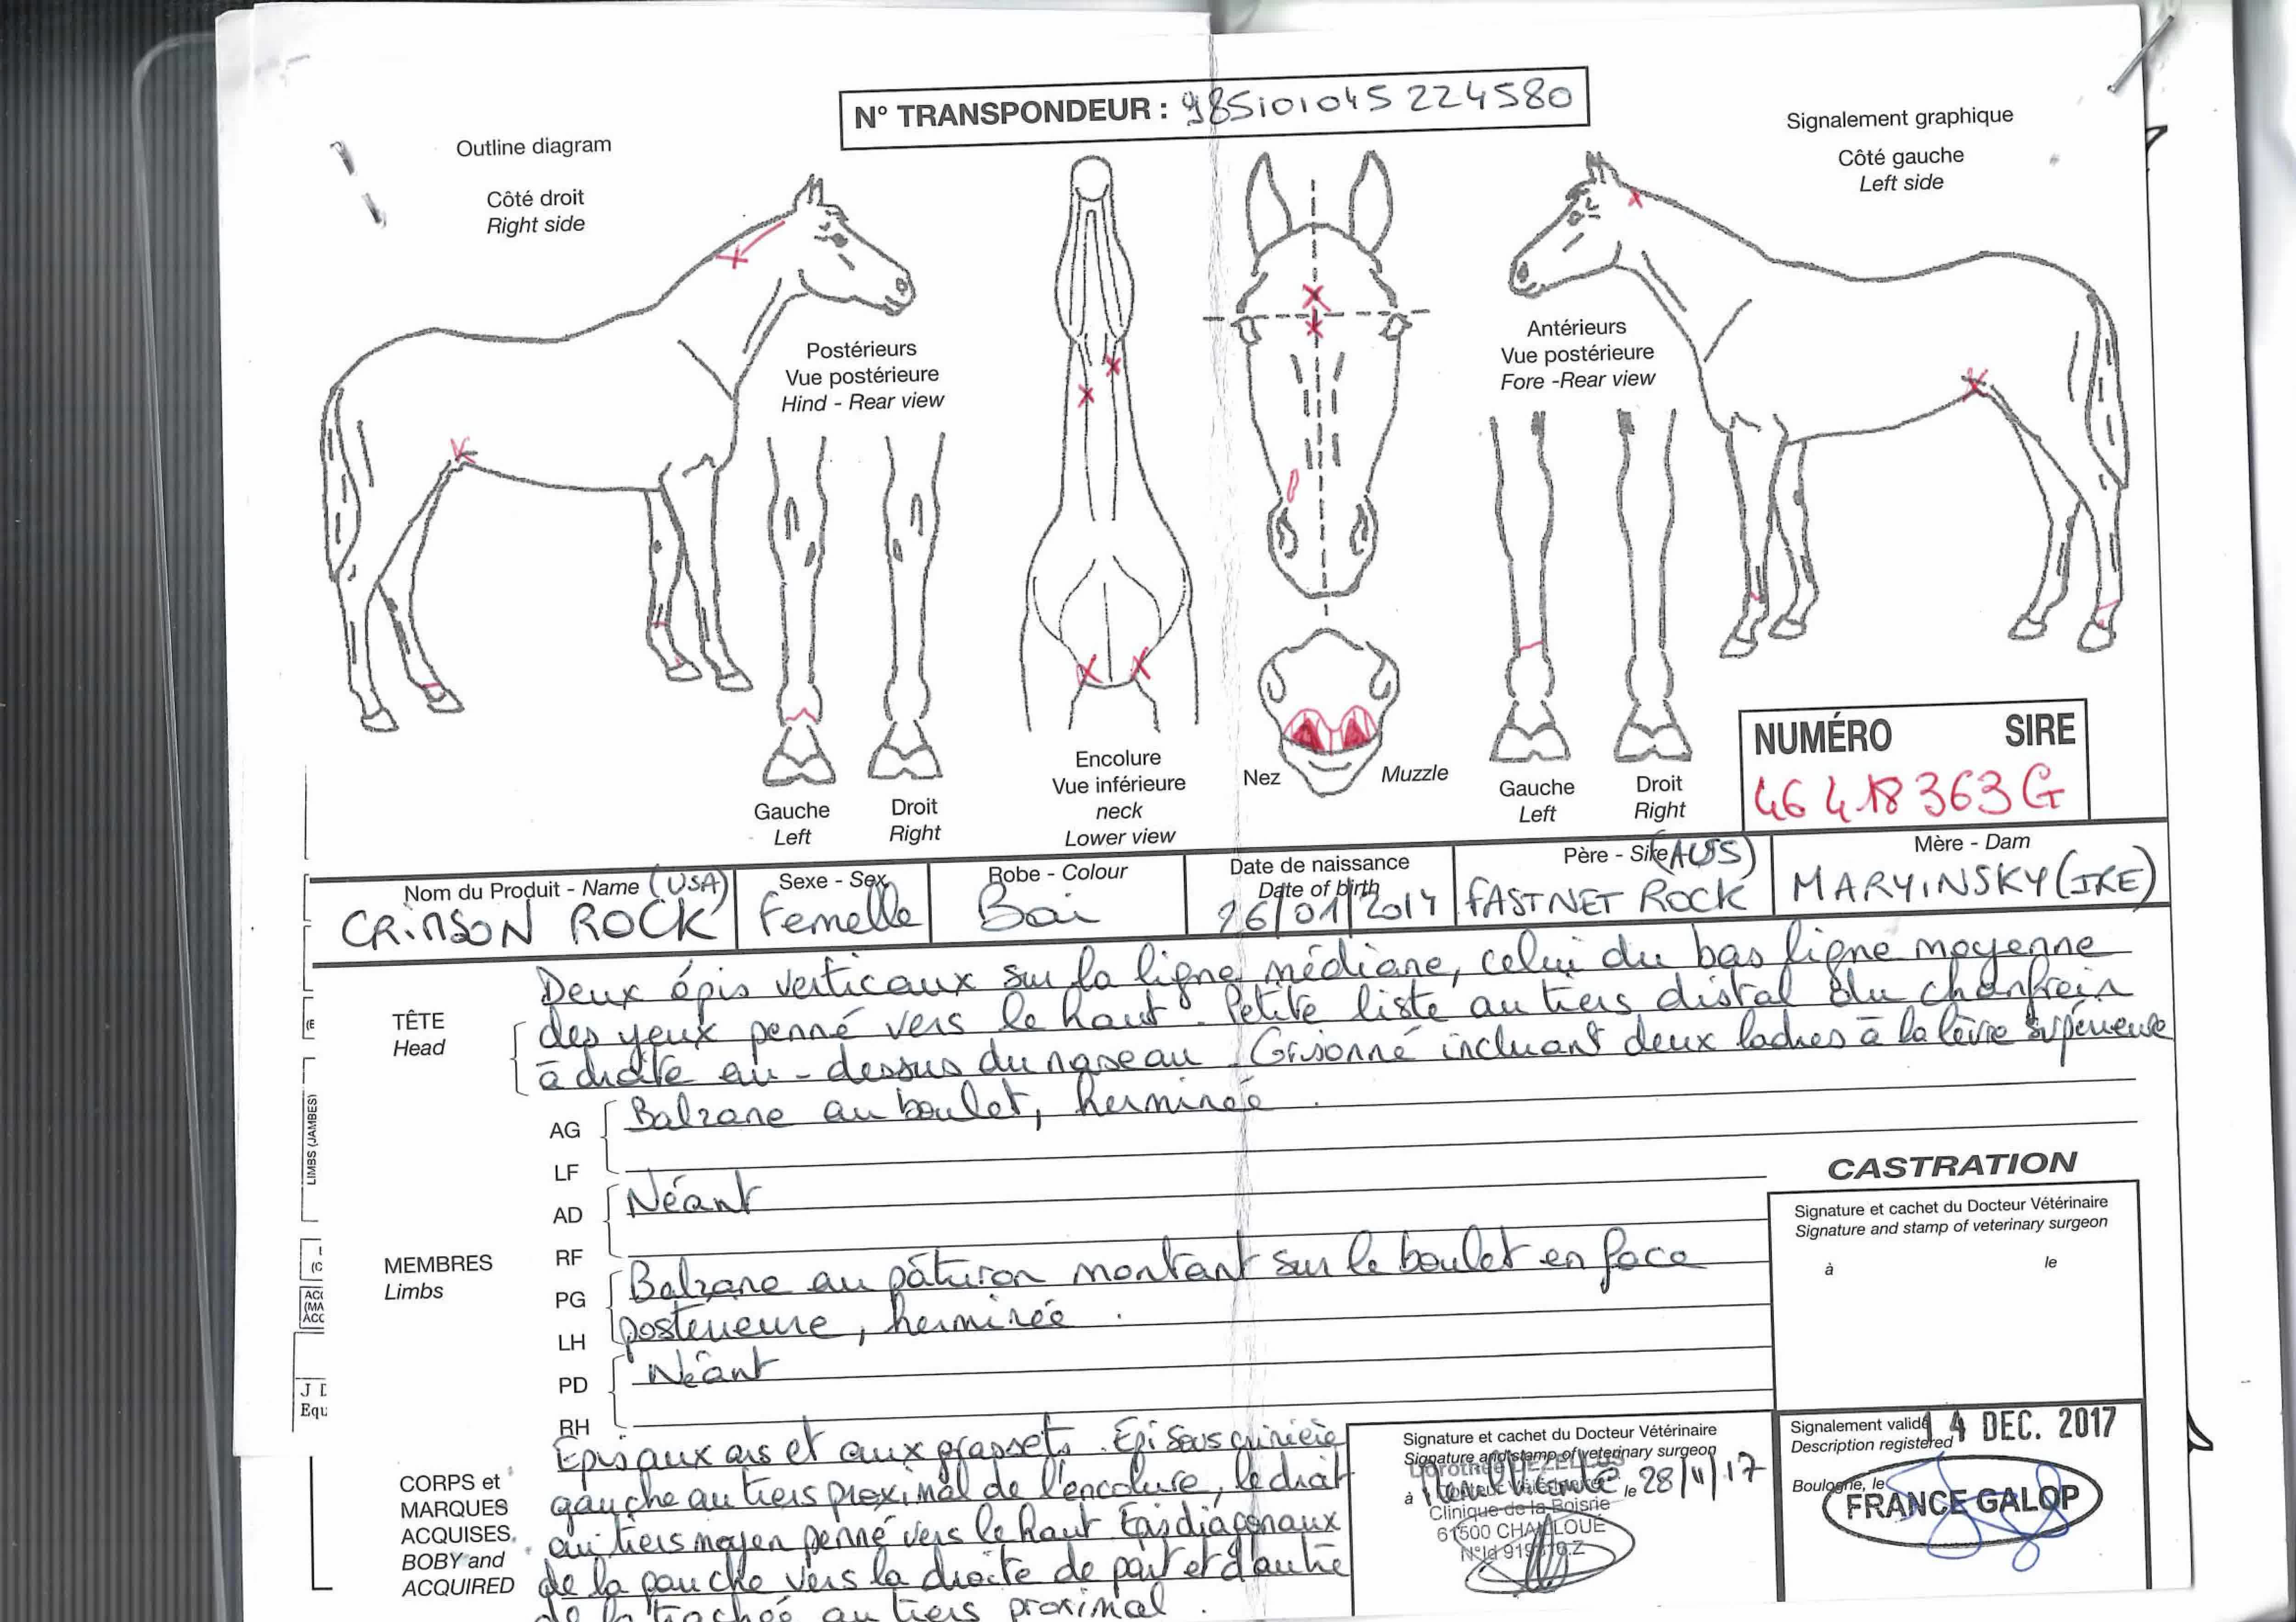 N° TRANSPONDEUR : 985101045224580
Outline diagram
Côté droit
Right side
Signalement graphique
Côté gauche
Left side
Postérieurs
Vue postérieure
Hind - Rear view
Antérieurs
Vue postérieure
Fore -Rear view
Gauche
Left
Droit
Right
Encolure
Vue inférieure
neck
Lower view
Nez
Muzzle
Gauche
Left
Droit
Right
NUMÉRO SIRE
46 418 363 G
Nom du Produit - Name (USA)
CRIMSON ROCK
Sexe - Sex
Femelle
Robe - Colour
Bai
Date de naissance
Date of birth
26/01/2014
Père - Sire (AUS)
FASTNET ROCK
Mère - Dam
MARYINSKY (IRE)
TÊTE
Head
Deux épis verticaux sur la ligne médiane, celui du bas ligne moyenne
des yeux penné vers le haut. Petite liste au tiers distal du chanfrein
à droite au-dessus du naseau. Grisonné incluant deux ladres à la lèvre supérieure
LIMBS (JAMBES)
MEMBRES
Limbs
AG
LF
Balzane au boulet, herminée.
AD
RF
Néant
PG
LH
Balzane au pâturon montant sur le boulet en face
posterieure, herminée.
PD
RH
Néant
CASTRATION
Signature et cachet du Docteur Vétérinaire
Signature and stamp of veterinary surgeon
à le
(E
(C
ACC
(MA
ACC
Equ
CORPS et
MARQUES
ACQUISES
BOBY and
ACQUIRED
Epis aux ars et aux grassets. Epi sous crinière
gauche au tiers proximal de l'encolure, le droit
au tiers moyen penné vers le haut. Epis diagonaux
de la gauche vers la droite de part et d'autre
de la trachée au tiers proximal.
Signature et cachet du Docteur Vétérinaire
Signature and stamp of veterinary surgeon
à le 28/11/17
Clinique de la Boisrie
61500
Signalement validé
Description registered
14 DEC. 2017
Boulogne, le
FRANCE GALOP